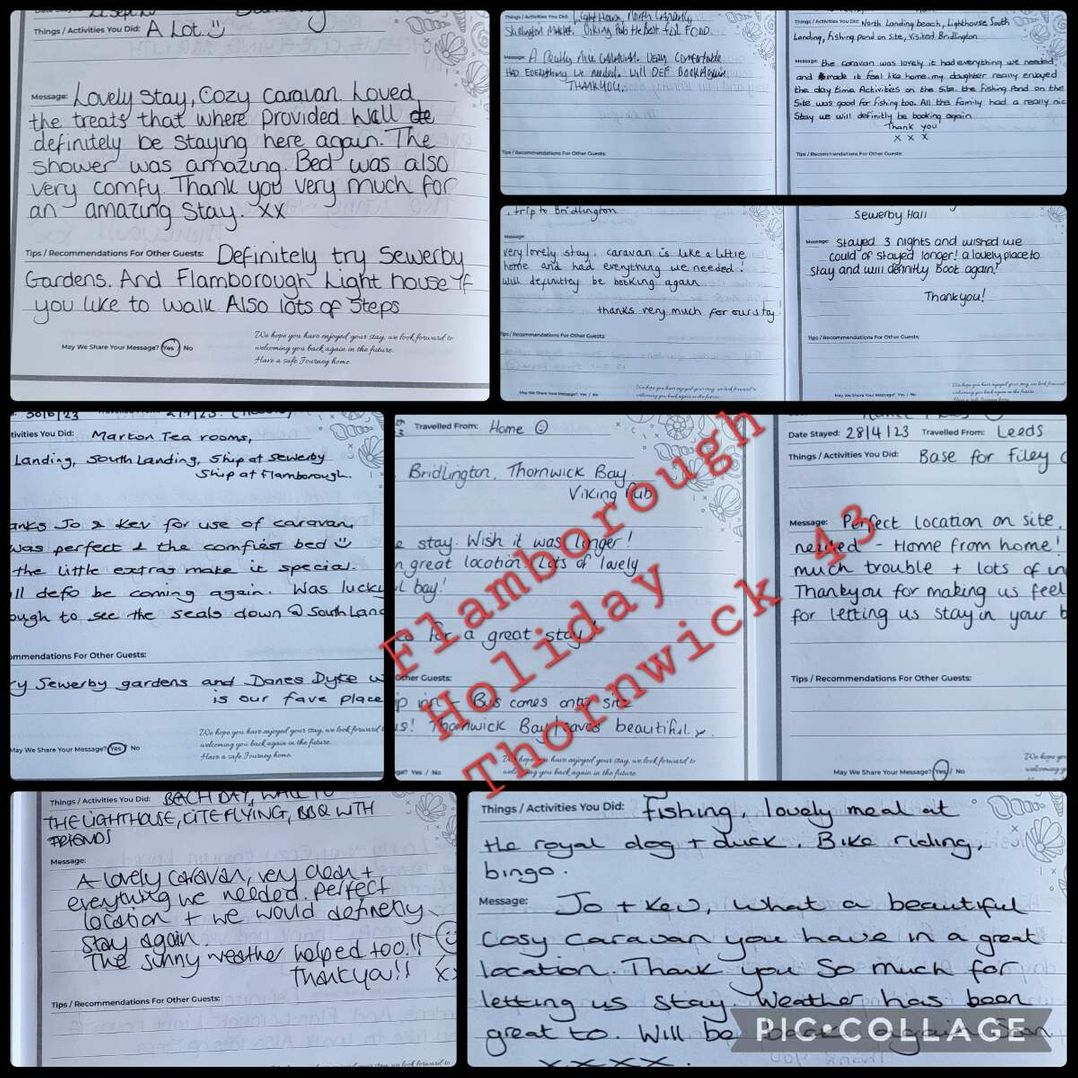 Things / Activities You Did: A Lot
Message: Lovely Stay, Cozy caravan. Loved
the treats that where provided Will de
definitely be staying here again. The
shower was amazing. Bed was also
very comfy. Thank you very much for
an amazing stay. xx
Tips / Recommendations For Other Guests: Definitely try Sewerby
Gardens. And Flamborough Light house If
you like to walk Also lots of Steps
May We Share Your Message? Yes / No
We hope you have enjoyed your stay, we look forward to
welcoming you back again in the future.
Have a safe Journey home.
Things / Activities You Did: Light House, North Landing
Message: A Really Nice Caravan. Very Comfortable
Had Everything we needed. Will DEF Book Again
THANKYOU.
Tips / Recommendations For Other Guests:
Things / Activities You Did: North Landing beach, Lighthouse South
Landing, Fishing pond on site, Visited Bridlington
Message: the caravan was lovely it had everything we needed
and made it feel like home. my daughter really enjoyed
the day time Activities on the site. the fishing Pond on the
Site was good for fishing too. All the family had a really nic
Stay we will definitly be booking again
Thank you
x x x
Tips / Recommendations For Other Guests:
trip to Bridlington
Message:
very lovely stay. caravan is like a little
home and had everything we needed!
will definitley be booking again
thanks very much for our stay
Tips / Recommendations For Other Guests:
May We Share Your Message? Yes / No
Sewerby Hall
Message: Stayed 3 nights and wished we
could of stayed longer! a lovely place to
stay and will definitly book again!
Thankyou!
Tips / Recommendations For Other Guests:
May We Share Your Message? Yes / No
30/6/23
tivities You Did: Marton Tea rooms,
Landing, South Landing, Ship at Sewerby
Ship at Flamborough.
anks Jo & Kev for use of caravan,
was perfect & the comfiest bed
the little extras make it special.
ll defo be coming again. Was lucky
ough to see the seals down @ South Land
mmendations For Other Guests:
y Sewerby gardens and Danes Dyke w
is our fave place
May We Share Your Message? Yes No
We hope you have enjoyed your stay, we look forward
welcoming you back again in the future.
Have a safe Journey home.
Travelled From: Home
Bridlington, Thornwick Bay.
Viking Pub
e stay. Wish it was longer!
n great location. Lots of lovely
bay!
for a great stay!
Other Guests:
p inn - Bus comes onto site
us! Thornwick Bay/caves beautiful. x
Yes / No
We hope you have enjoyed your stay, we look forward to
welcoming you back again in the future.
Flamborough
Holiday
Thornwick 43
Date Stayed: 28/4/23 Travelled From: Leeds
Things / Activities You Did: Base for Filey
Message: Perfect location on site,
needed - Home from home!
much trouble + lots of in
Thankyou for making us feel
for letting us stay in your b
Tips / Recommendations For Other Guests:
May We Share Your Message? Yes / No
We hope you
welcoming y
Have a
Things / Activities You Did: BEACH DAY, WALK TO
THE LIGHTHOUSE, KITE FLYING, BBQ WITH
FRIENDS
Message:
A lovely caravan, very clean +
everything we needed. perfect
location + we would definetly
Stay again.
The sunny weather helped too!!
Thankyou!! xx
Tips / Recommendations For Other Guests:
Things / Activities You Did: Fishing, lovely meal at
the royal dog + duck. Bike riding,
bingo.
Message: Jo + Kev, What a beautiful
Cosy Caravan you have in a great
location. Thank you So much for
letting us stay. Weather has been
great to. Will be back again Soon
x x x x
PIC•COLLAGE